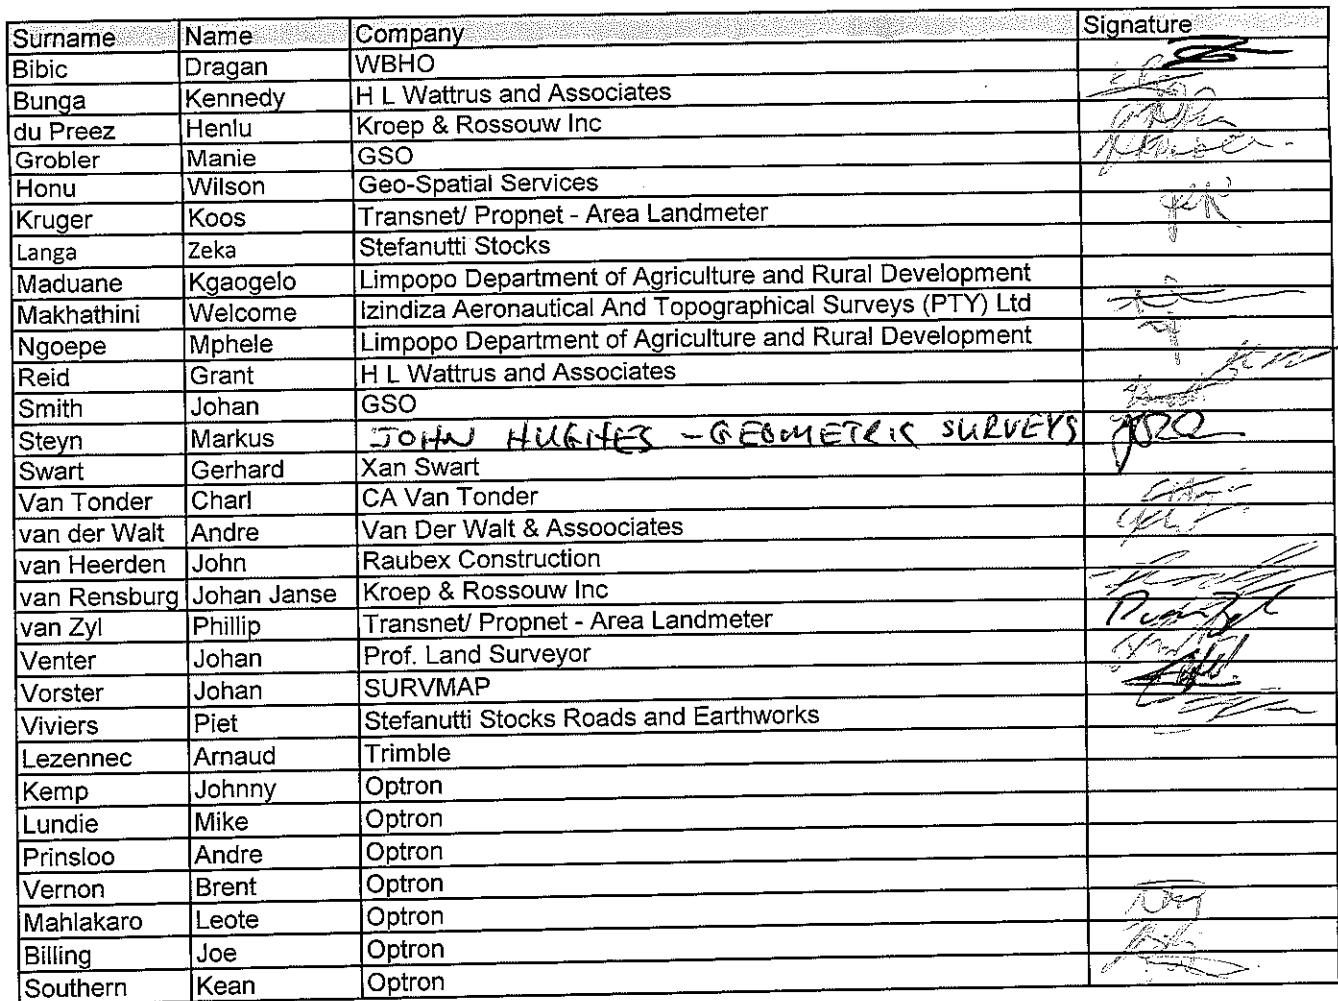 Surname Name Company Signature
Bibic Dragan WBHO
Bunga Kennedy H L Wattrus and Associates
du Preez Henlu Kroep & Rossouw Inc
Grobler Manie GSO
Honu Wilson Geo-Spatial Services
Kruger Koos Transnet/ Propnet - Area Landmeter
Langa Zeka Stefanutti Stocks
Maduane Kgaogelo Limpopo Department of Agriculture and Rural Development
Makhathini Welcome Izindiza Aeronautical And Topographical Surveys (PTY) Ltd
Ngoepe Mphele Limpopo Department of Agriculture and Rural Development
Reid Grant H L Wattrus and Associates
Smith Johan GSO
Steyn Markus JOHN HUGHES - GEOMETRIC SURVEYS
Swart Gerhard Xan Swart
Van Tonder Charl CA Van Tonder
van der Walt Andre Van Der Walt & Assoociates
van Heerden John Raubex Construction
van Rensburg Johan Janse Kroep & Rossouw Inc
van Zyl Phillip Transnet/ Propnet - Area Landmeter
Venter Johan Prof. Land Surveyor
Vorster Johan SURVMAP
Viviers Piet Stefanutti Stocks Roads and Earthworks
Lezennec Arnaud Trimble
Kemp Johnny Optron
Lundie Mike Optron
Prinsloo Andre Optron
Vernon Brent Optron
Mahlakaro Leote Optron
Billing Joe Optron
Southern Kean Optron